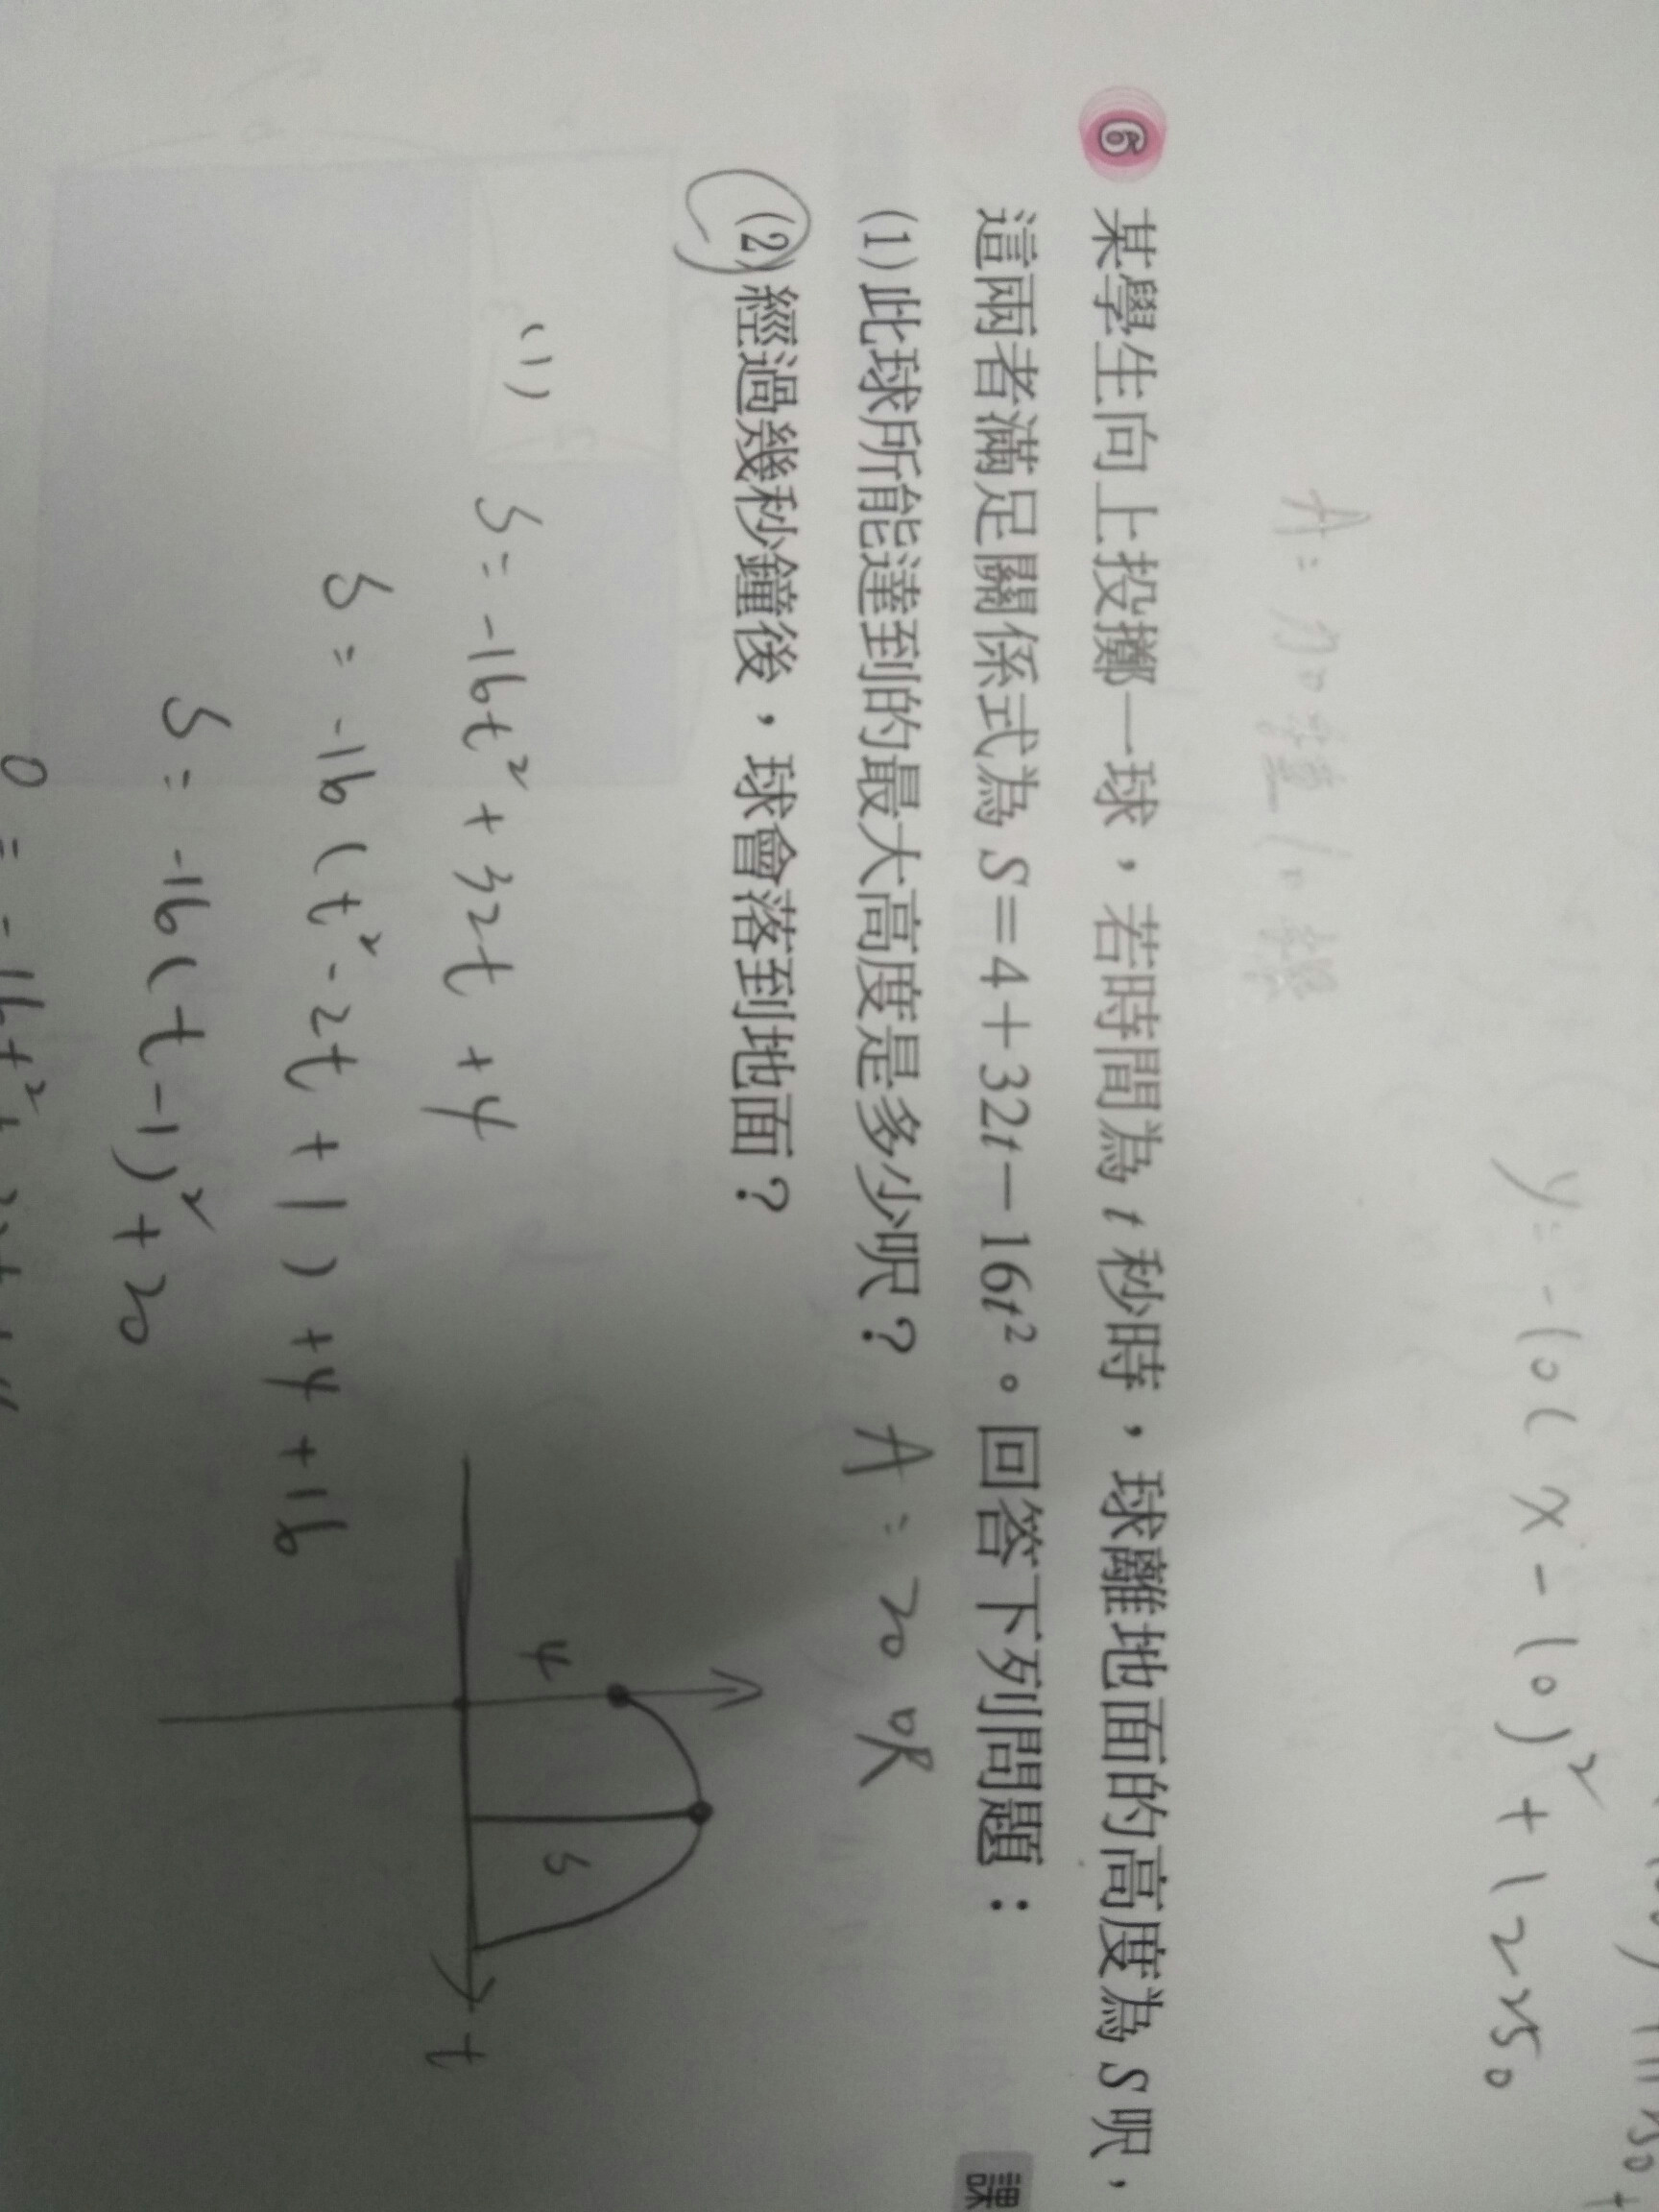 y=-10(x-10)²+12250
A=50 種10棵
6 某學生向上投擲一球，若時間為 t 秒時，球離地面的高度為 S 呎，
這兩者滿足關係式為 S=4+32t-16t²。回答下列問題：
課
(1)此球所能達到的最大高度是多少呎？ A：20呎
(2)經過幾秒鐘後，球會落到地面？
(1) S=-16t²+32t+4
S=-16(t²-2t+1)+4+16
S=-16(t-1)²+20
4
S
t